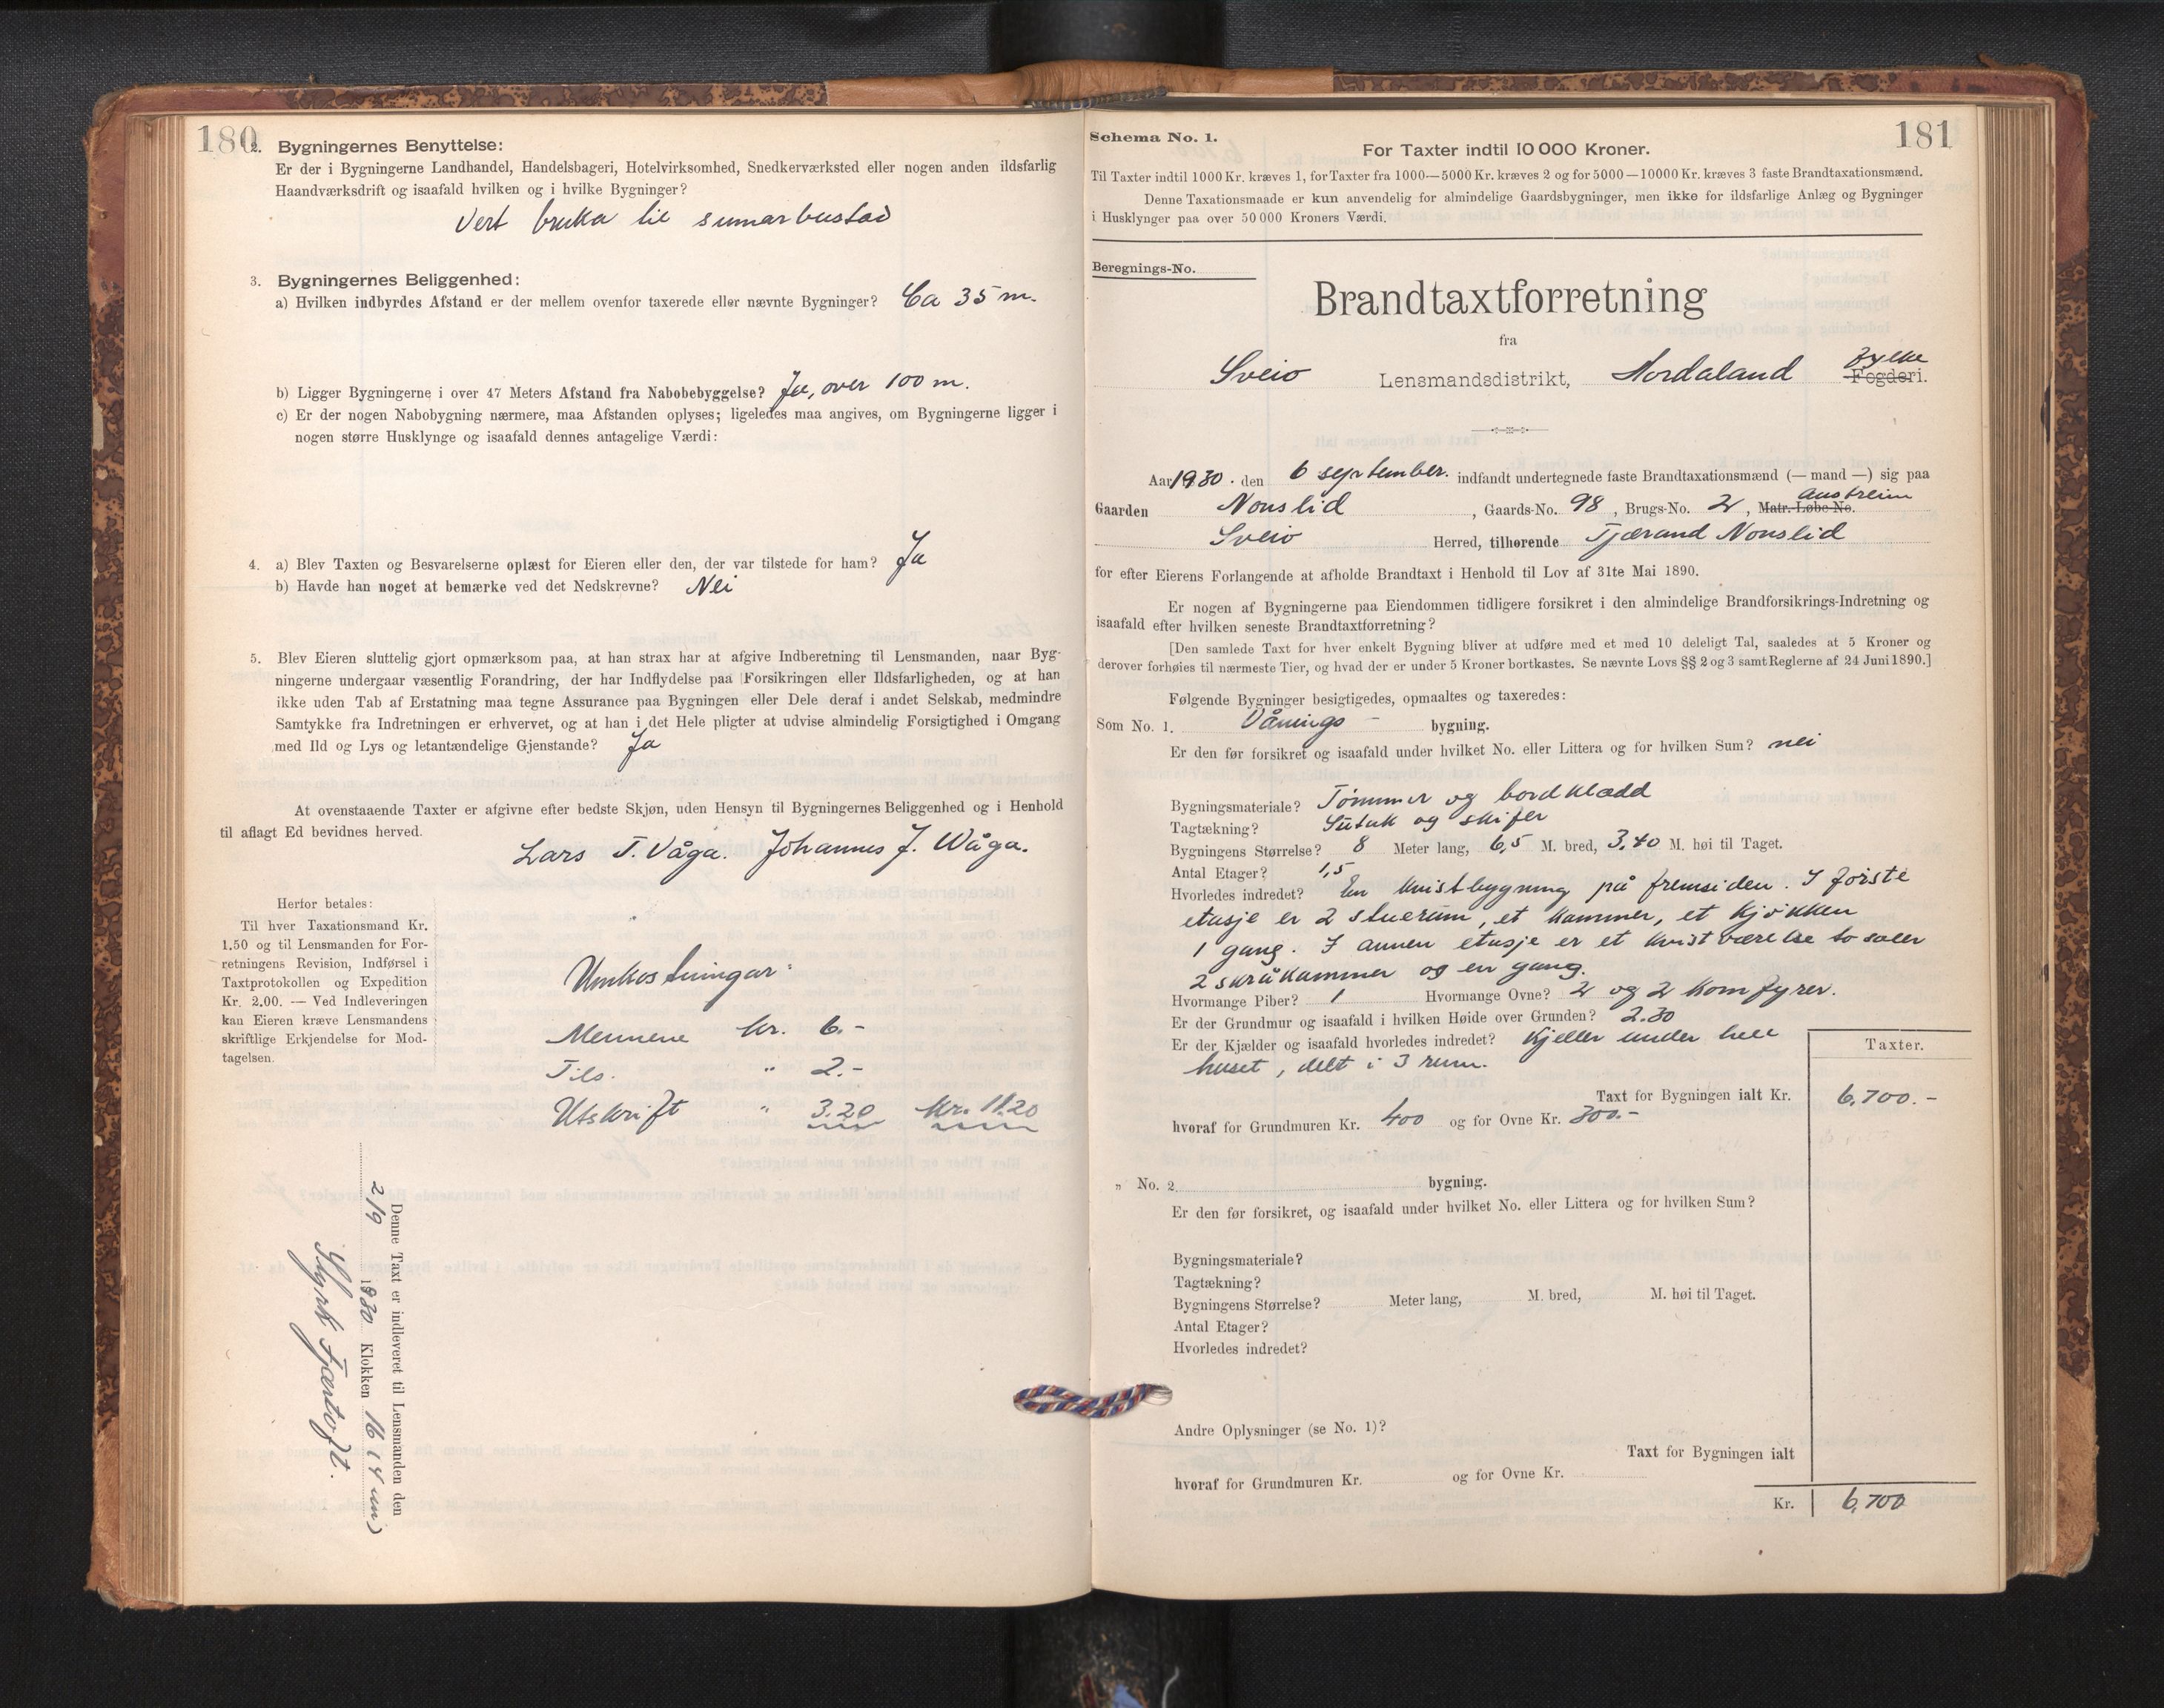 180
2. Bygningernes Benyttelse:
Er der i Bygningerne Landhandel, Handelsbageri, Hotelvirksomhed, Snedkerværksted eller nogen anden ildsfarlig
Haandværksdrift og isaafald hvilken og i hvilke Bygninger?
Vert bruka til sumarbustad
3. Bygningernes Beliggenhed:
a) Hvilken indbyrdes Afstand er der mellem ovenfor taxerede eller nævnte Bygninger? Ca 35 m.
b) Ligger Bygningerne i over 47 Meters Afstand fra Nabobebyggelse? Ja, over 100 m.
c) Er der nogen Nabobygning nærmere, maa Afstanden oplyses; ligeledes maa angives, om Bygningerne ligger i
nogen større Husklynge og isaafald dennes antagelige Værdi:
4. a) Blev Taxten og Besvarelserne oplæst for Eieren eller den, der var tilstede for ham? Ja
b) Havde han noget at bemærke ved det Nedskrevne? Nei
5. Blev Eieren sluttelig gjort opmærksom paa, at han strax har at afgive Indberetning til Lensmanden, naar Byg-
ningerne undergaar væsentlig Forandring, der har Indflydelse paa Forsikringen eller Ildsfarligheden, og at han
ikke uden Tab af Erstatning maa tegne Assurance paa Bygningen eller Dele deraf i andet Selskab, medmindre
Samtykke fra Indretningen er erhvervet, og at han i det Hele pligter at udvise almindelig Forsigtighed i Omgang
med Ild og Lys og letantændelige Gjenstande? Ja
At ovenstaaende Taxter er afgivne efter bedste Skjøn, uden Hensyn til Bygningernes Beliggenhed og i Henhold
til aflagt Ed bevidnes herved.
Lars T. Våga. Johannes J. Wåga.
Herfor betales:
Til hver Taxationsmand Kr.
1.50 og til Lensmanden for For-
retningens Revision, Indførsel i
Taxtprotokollen og Expedition
Kr. 2.00. — Ved Indleveringen
kan Eieren kræve Lensmandens
skriftlige Erkjendelse for Mod-
tagelsen.
Umkostningar:
Mennene kr. 6.-
Tils. " 2.-
Utskrift " 3.20 Kr. 11.20
Denne Taxt er indleveret til Lensmanden den
2/9 1930 Klokken 16 (4 um)
181
Schema No. 1.
For Taxter indtil 10 000 Kroner.
Til Taxter indtil 1000 Kr. kræves 1, for Taxter fra 1000—5000 Kr. kræves 2 og for 5000—10000 Kr. kræves 3 faste Brandtaxationsmænd.
Denne Taxationsmaade er kun anvendelig for almindelige Gaardsbygninger, men ikke for ildsfarlige Anlæg og Bygninger
i Husklynger paa over 50 000 Kroners Værdi.
Beregnings-No.
Brandtaxtforretning
fra
Sveio Lensmandsdistrikt, Hordaland Fylke Fogderi.
Aar 1930. den 6 september. indfandt undertegnede faste Brandtaxationsmænd (— mand —) sig paa
Gaarden Nonslid, Gaards-No. 98, Brugs-No. 2, Matr.-Løbe-No. austreim
Sveio Herred, tilhørende Tjærand Nonslid
for efter Eierens Forlangende at afholde Brandtaxt i Henhold til Lov af 31te Mai 1890.
Er nogen af Bygningerne paa Eiendommen tidligere forsikret i den almindelige Brandforsikrings-Indretning og
isaafald efter hvilken seneste Brandtaxtforretning?
[Den samlede Taxt for hver enkelt Bygning bliver at udføre med et med 10 deleligt Tal, saaledes at 5 Kroner og
derover forhøies til nærmeste Tier, og hvad der er under 5 Kroner bortkastes. Se nævnte Lovs §§ 2 og 3 samt Reglerne af 24 Juni 1890.]
Følgende Bygninger besigtigedes, opmaaltes og taxeredes:
Som No. 1. Vånings- bygning.
Er den før forsikret og isaafald under hvilket No. eller Littera og for hvilken Sum? nei
Bygningsmateriale? Tømmer og bordklædd
Tagtækning? Sutak og skifer
Bygningens Størrelse? 8 Meter lang, 6,5 M. bred, 3,40 M. høi til Taget.
Antal Etager? 1,5
Hvorledes indredet? En kvistbygning på fremsiden. I første
etasje er 2 stuerum, et kammer, et kjøkken
1 gang. I annen etasje er et kvistværelse to saler
2 skråkammer og en gang.
Hvormange Piber? 1 Hvormange Ovne? 2 og 2 komfyrer.
Er der Grundmur og isaafald i hvilken Høide over Grunden? 2.30
Er der Kjælder og isaafald hvorledes indredet? Kjeller under hele
huset, delt i 3 rum.
Taxter.
Taxt for Bygningen ialt Kr. 6,700.-
hvoraf for Grundmuren Kr. 400 og for Ovne Kr. 300.-
„ No. 2. bygning.
Er den før forsikret, og isaafald under hvilket No. eller Littera og for hvilken Sum?
Bygningsmateriale?
Tagtækning?
Bygningens Størrelse? Meter lang, M. bred, M. høi til Taget.
Antal Etager?
Hvorledes indredet?
Andre Oplysninger (se No. 1)?
Taxt for Bygningen ialt
hvoraf for Grundmuren Kr. og for Ovne Kr.
Kr. 6,700